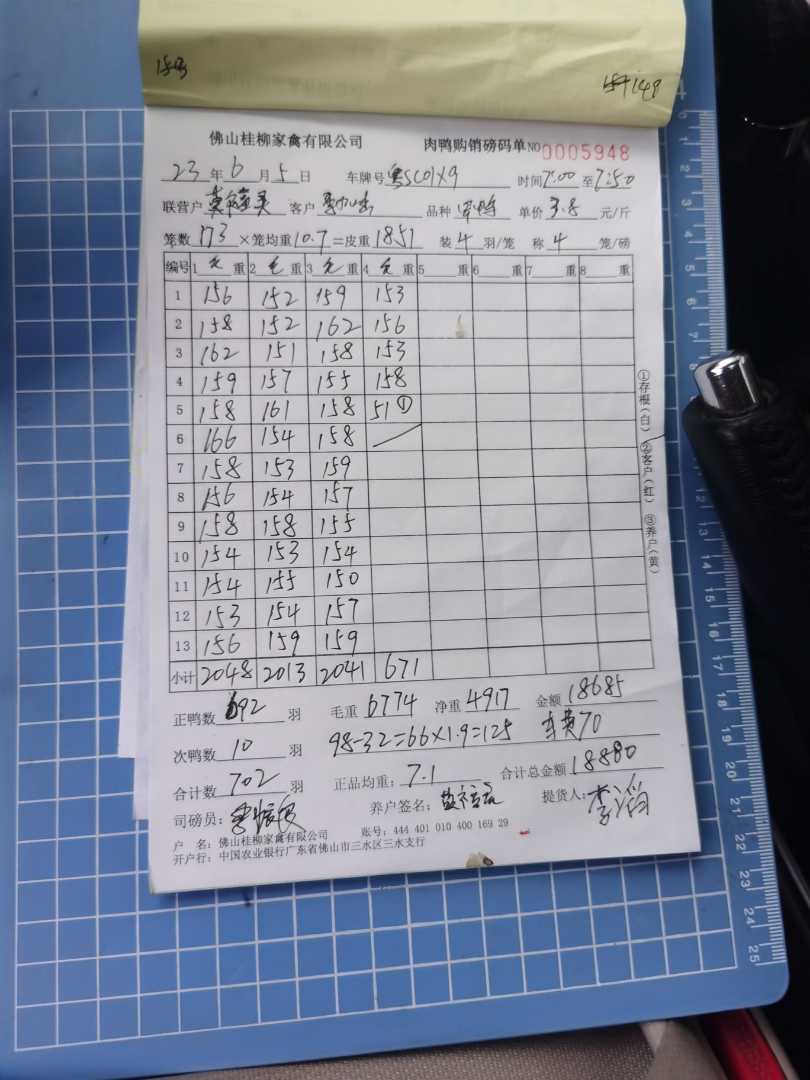 149
佛山桂柳家禽有限公司 肉鸭购销磅码单 NO 0005948
23 年 6 月 5 日 车牌号 粤SC01X9 时间 7:00 至 7:50
联营户 客户 品种 单价 3.8 元/斤
笼数 173 ×笼均重 10.7 =皮重 1851 装 4 羽/笼 称 4 笼/磅
编号 1 毛 重 2 毛 重 3 毛 重 4 毛 重 5 重 6 重 7 重 8 重
1 156 152 159 153
2 158 152 162 156
3 162 151 158 153
4 159 157 155 158
5 158 161 158 51 ①
6 166 154 158
7 158 153 159
8 156 154 157
9 158 158 155
10 154 153 154
11 154 155 150
12 153 154 157
13 156 159 159
小计 2048 2013 2041 671
①存根(白) ②客户(红) ③养户(黄)
正鸭数 692 羽 毛重 6774 净重 4917 金额 18685
次鸭数 10 羽 98-32=66×1.9=125 车费70
合计数 702 羽 正品均重: 7.1 合计总金额 18880
司磅员: 养户签名: 提货人: 李滔
户 名: 佛山桂柳家禽有限公司 账号: 444 401 010 400 169 29
开户行: 中国农业银行广东省佛山市三水区三水支行